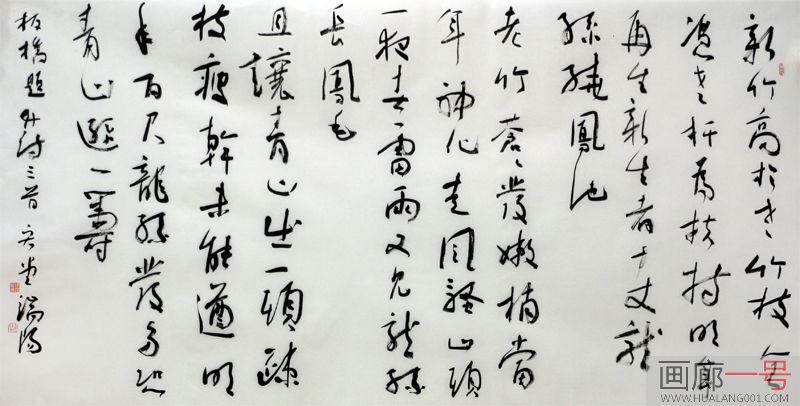 新竹高於老竹枝全
憑老杆為扶持明年
再生新生者十丈龍
孫繞鳳池
老竹蒼蒼發嫩梢當
年神化走風騷山頭
一夜春雷雨又見龍孫
長鳳毛
且讓青山出一頭疎
枝瘦幹未能遒明
年百尺龍孫發多恐
青山遜一籌
板橋題竹詩三首
画廊一号
WWW.HUALANG001.COM